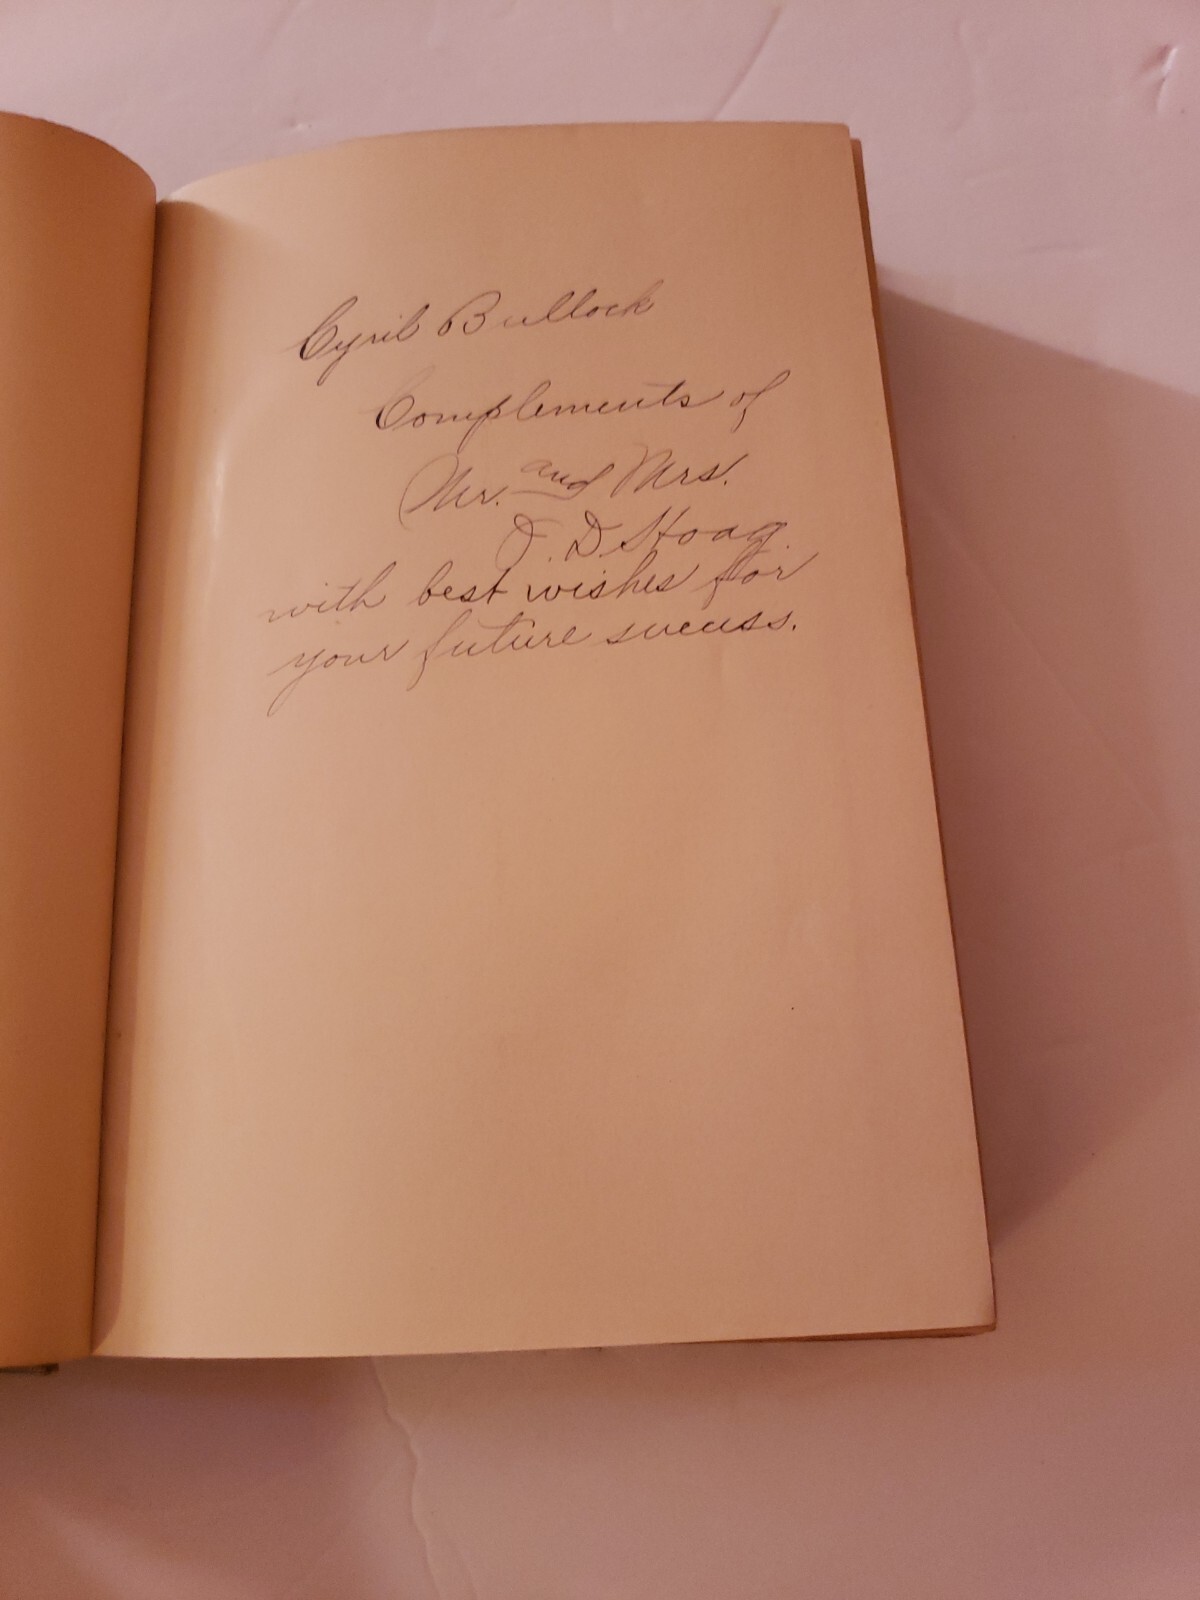 Cyril Bullock
Complements of
Mr. and Mrs.
J. D. Hoag
with best wishes for
your future success.